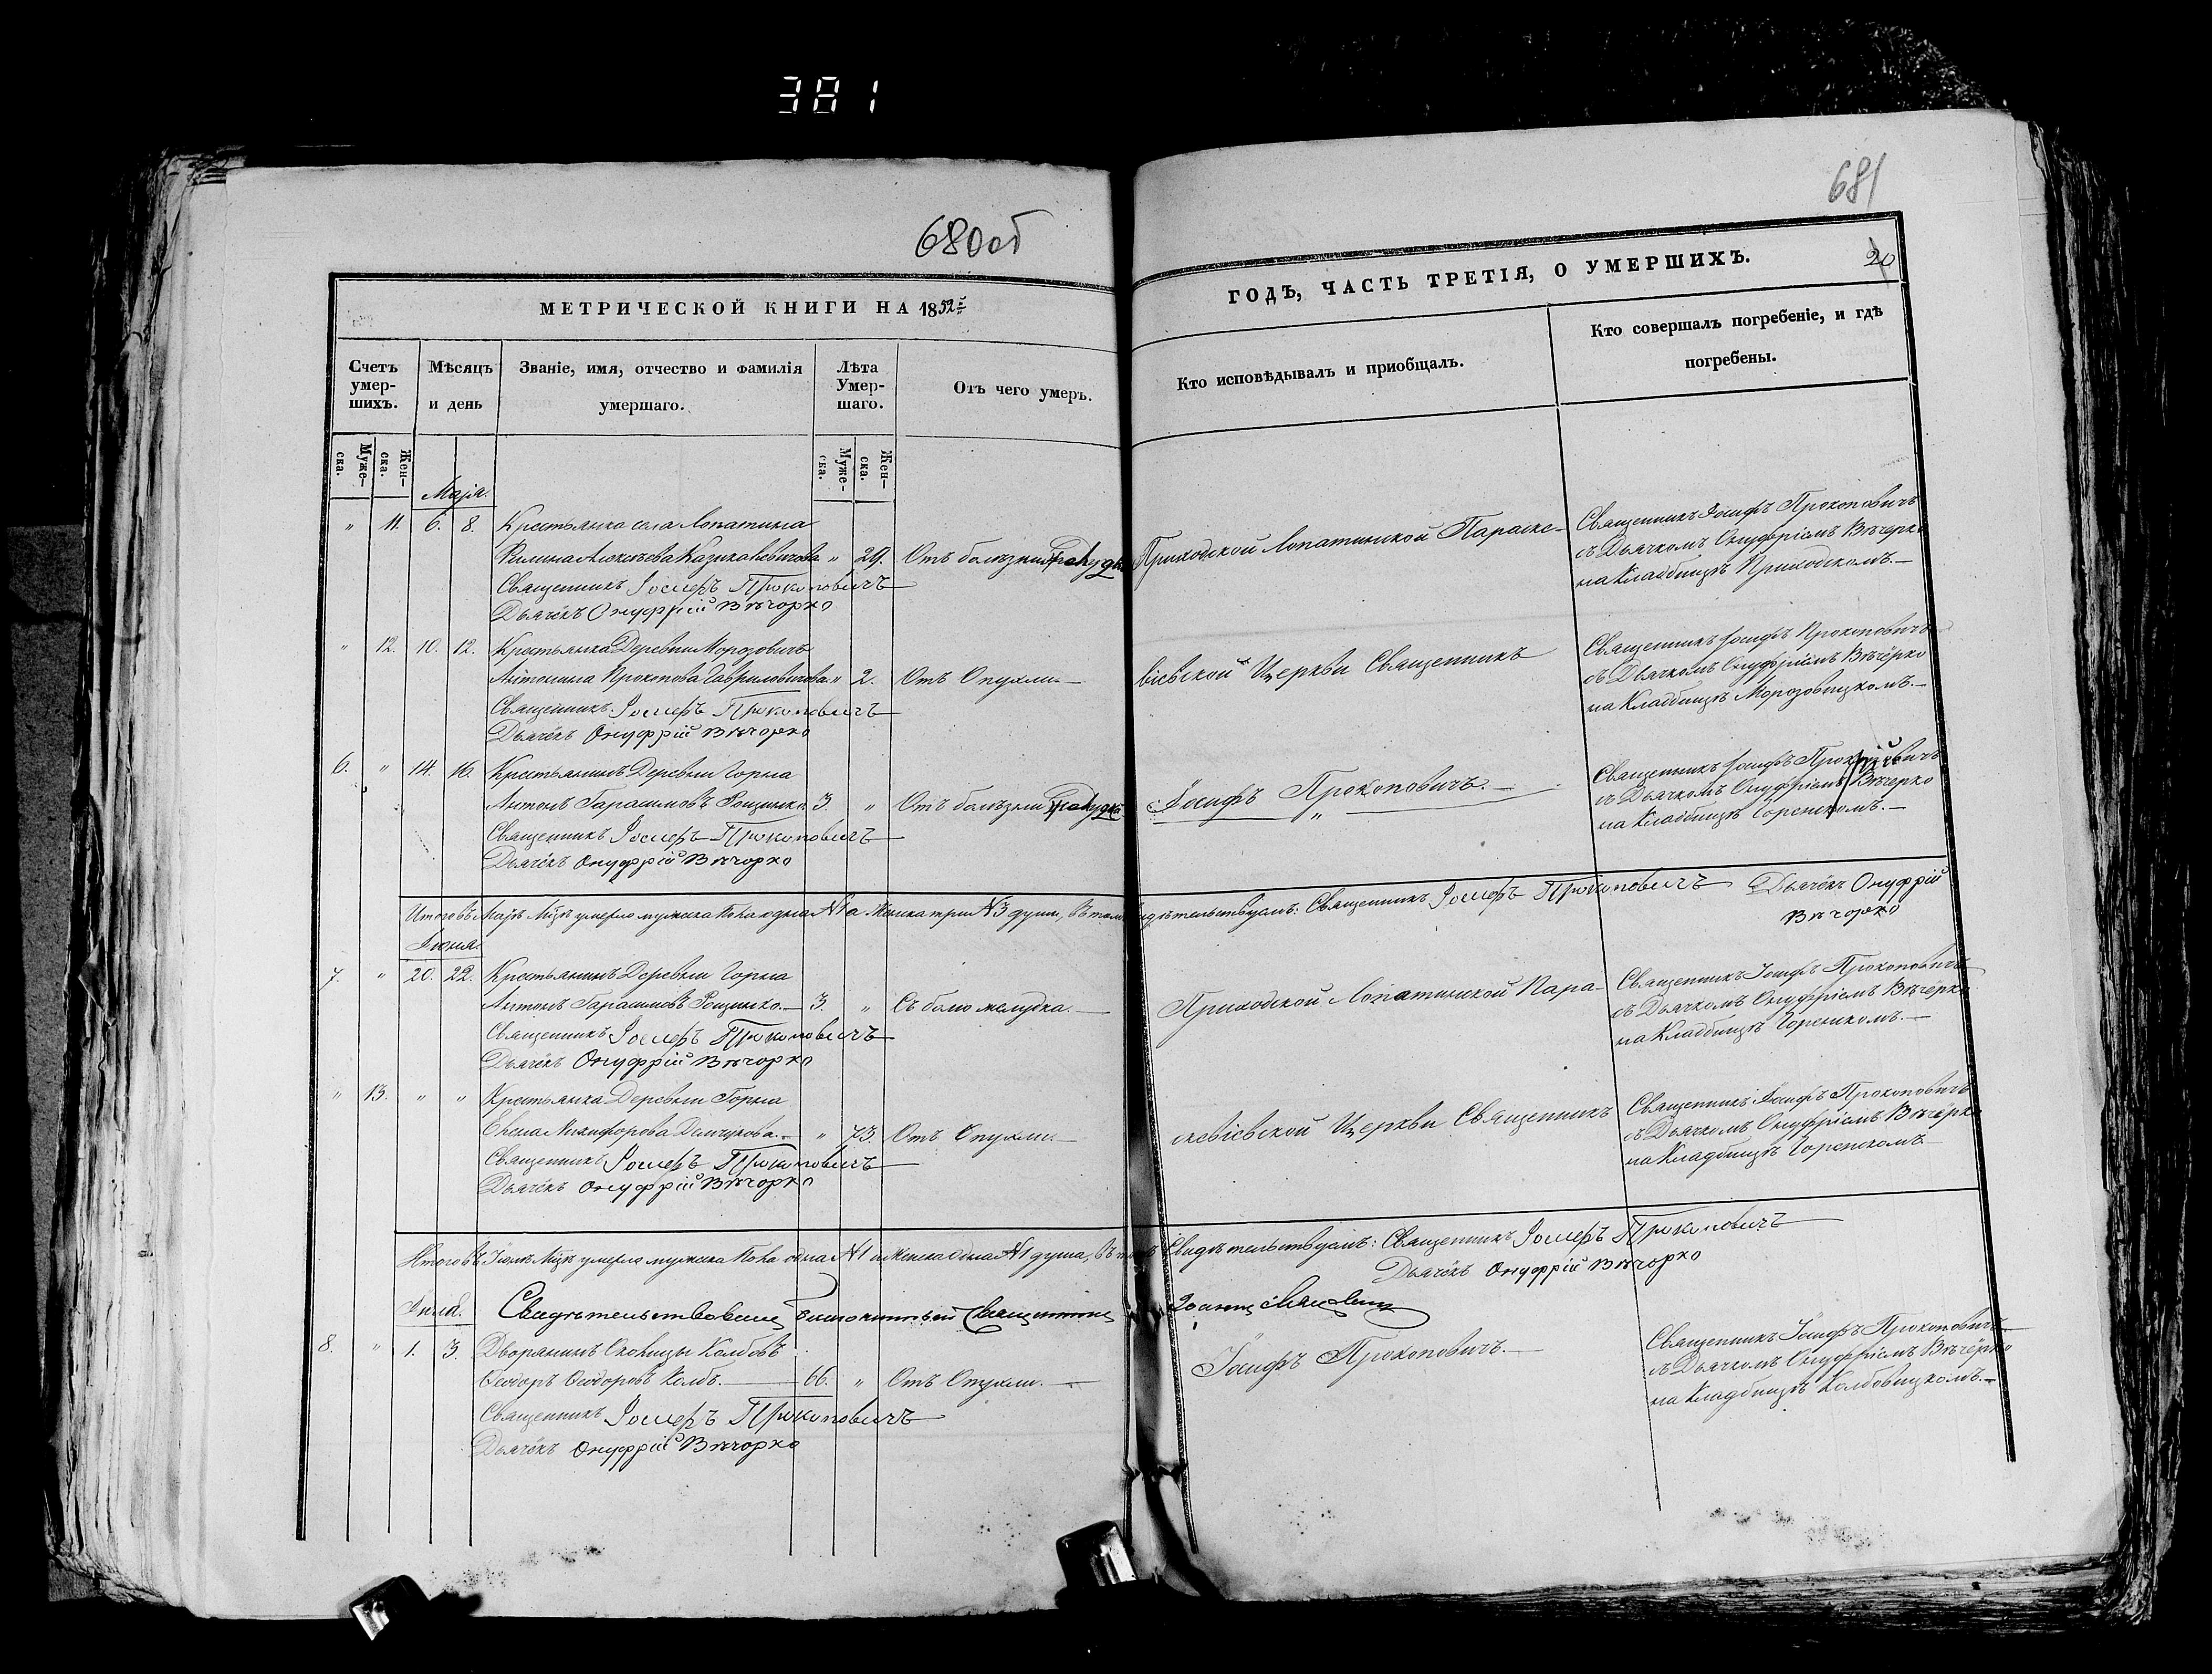 381
680об
681
МЕТРИЧЕСКОЙ КНИГИ НА 1852й
ГОДЪ, ЧАСТЬ ТРЕТІЯ, О УМЕРШИХЪ.
20
Счетъ умер-шихъ.
Мѣсяцъ и день
Званіе, имя, отчество и фамилія умершаго.
Лѣта Умер-шаго.
Отъ чего умеръ.
Кто исповѣдывалъ и пріобщалъ.
Кто совершалъ погребеніе, и гдѣ погребены.
Муже-ска.
Жен-ска.
Муже-ска.
Жен-ска.
Маія.
" 11. 6. 8. Крестьянка села Лопатина
" 29. Отъ болѣзни
Священникъ Іосифъ Прокоповичъ
Дьячекъ Онуфрій Вѣчорко
Приходской Лопатинской Параске-
Священникъ Іосифъ Прокоповичъ
съ Дьячкомъ Онуфріемъ Вѣчерко
на Кладбищѣ Приходскомъ.—
" 12. 10. 12. Крестьянка Деревни Морозовичъ
Антонина Прокопова Гавриловичова " 2. Отъ Опухли—
Священникъ Іосифъ Прокоповичъ
Дьячекъ Онуфрій Вѣчорко
віевской Церкви Священникъ
Священникъ Іосифъ Прокоповичъ
съ Дьячкомъ Онуфріемъ Вѣчёрко
на Кладбищѣ Морозовицкомъ.—
6. " 14. 16. Крестьянинъ Деревни Горна
Антонъ Гарасимовъ Рощинко 3. " Отъ болѣзни
Священникъ Іосифъ Прокоповичъ
Дьячекъ Онуфрій Вѣчорко
Іосифъ Прокоповичъ.—
Священникъ Іосифъ Прокоповичъ
съ Дьячкомъ Онуфріемъ Вѣчерко
на Кладбищѣ Горенскомъ.—
Итого въ Маіѣ М-цѣ умерло мужеска Пола одна №1 а Женска три №3 души, въ томъ свидѣтельствуемъ: Священникъ Іосифъ Прокоповичъ Дьячёкъ Онуфрій
Вѣчорко
Іюня.
7. " 20. 22. Крестьянинъ Деревни Горна
Антонъ Гарасимовъ Рощинко.— 3. " Съ болю желудка.—
Священникъ Іосифъ Прокоповичъ
Дьячёкъ Онуфрій Вѣчорко
Приходской Лопатинской Пара-
Священникъ Іосифъ Прокоповичъ
съ Дьячкомъ Онуфріемъ Вѣчерко
на Кладбищѣ Горенскомъ.—
" 13. " " Крестьянка Деревни Горна
Елена Никифорова " 73. Отъ Опухли.—
Священникъ Іосифъ Прокоповичъ
Дьячёкъ Онуфрій Вѣчорко
скевіевской Церкви Священникъ
Священникъ Іосифъ Прокоповичъ
съ Дьячкомъ Онуфріемъ Вѣчёрко
на Кладбищѣ Горенскомъ—
Итого въ Іюнѣ М-цѣ умерла мужеска Пола одна №1 и Женска одна №1 душа, въ томъ Свидѣтельствуемъ: Священникъ Іосифъ Прокоповичъ
Дьячёкъ Онуфрій Вѣчорко
Іюля.
Свидѣтельствовалъ Благочинный Священникъ
8. " 1. 3. Дворянинъ Околицы Колбовъ
Ѳеодоръ Ѳеодоровъ Колбъ.— 66. " Отъ Опухли.—
Священникъ Іосифъ Прокоповичъ
Дьячёкъ Онуфрій Вѣчорко
Іосифъ Прокоповичъ.—
Священникъ Іосифъ Прокоповичъ
съ Дьячкомъ Онуфріемъ Вѣчёрко
на Кладбищѣ Колбовицкомъ.—